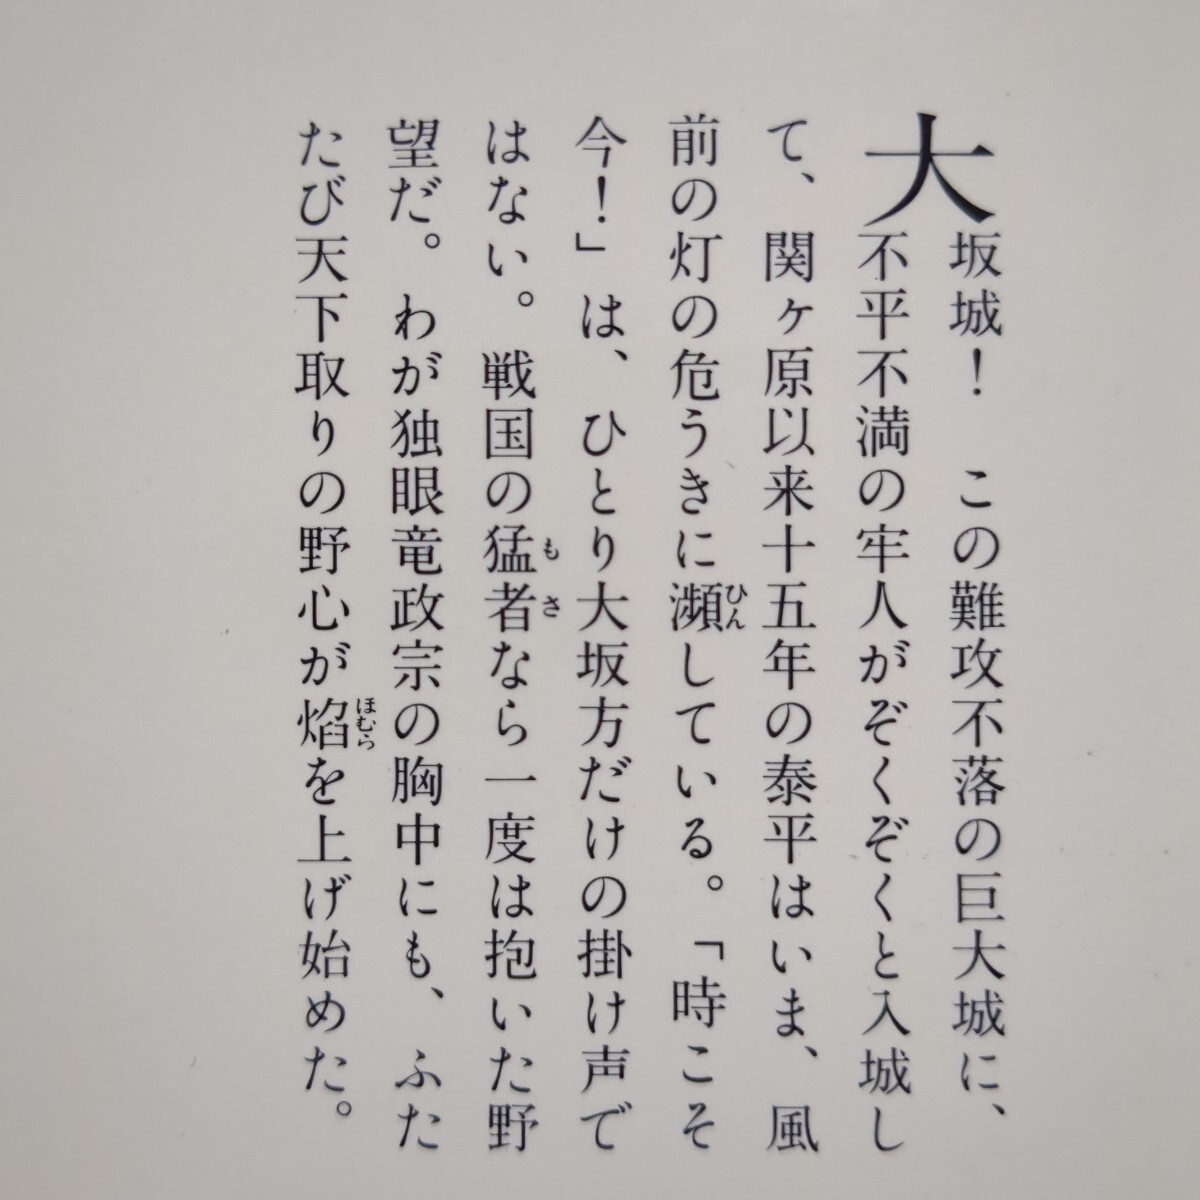 大坂城！　この難攻不落の巨大城に、
不平不満の牢人がぞくぞくと入城し
て、関ヶ原以来十五年の泰平はいま、風
前の灯の危うきに瀕している。「時こそ
今！」は、ひとり大坂方だけの掛け声で
はない。戦国の猛者なら一度は抱いた野
望だ。わが独眼竜政宗の胸中にも、ふた
たび天下取りの野心が焰を上げ始めた。
ひん
もさ
ほむら